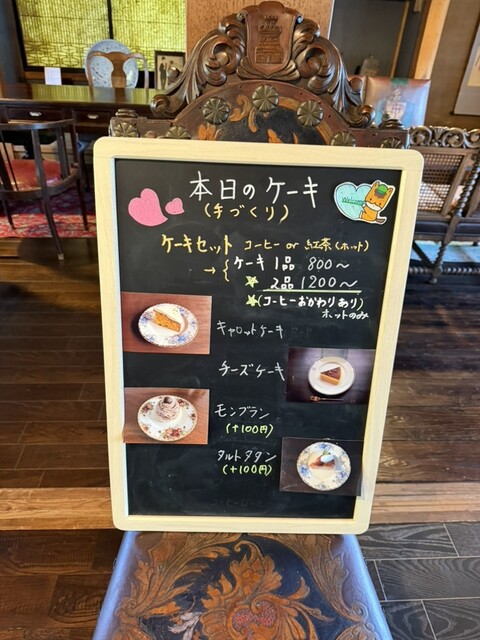 本日のケーキ
(手づくり)
Welcome
ケーキセット コーヒー or 紅茶(ホット)
→{ケーキ 1品 800〜
☆ 2品 1200〜
☆(コーヒーおかわりあり)
ホットのみ
キャロットケーキ
チーズケーキ
モンブラン
(+100円)
タルトタタン
(+100円)